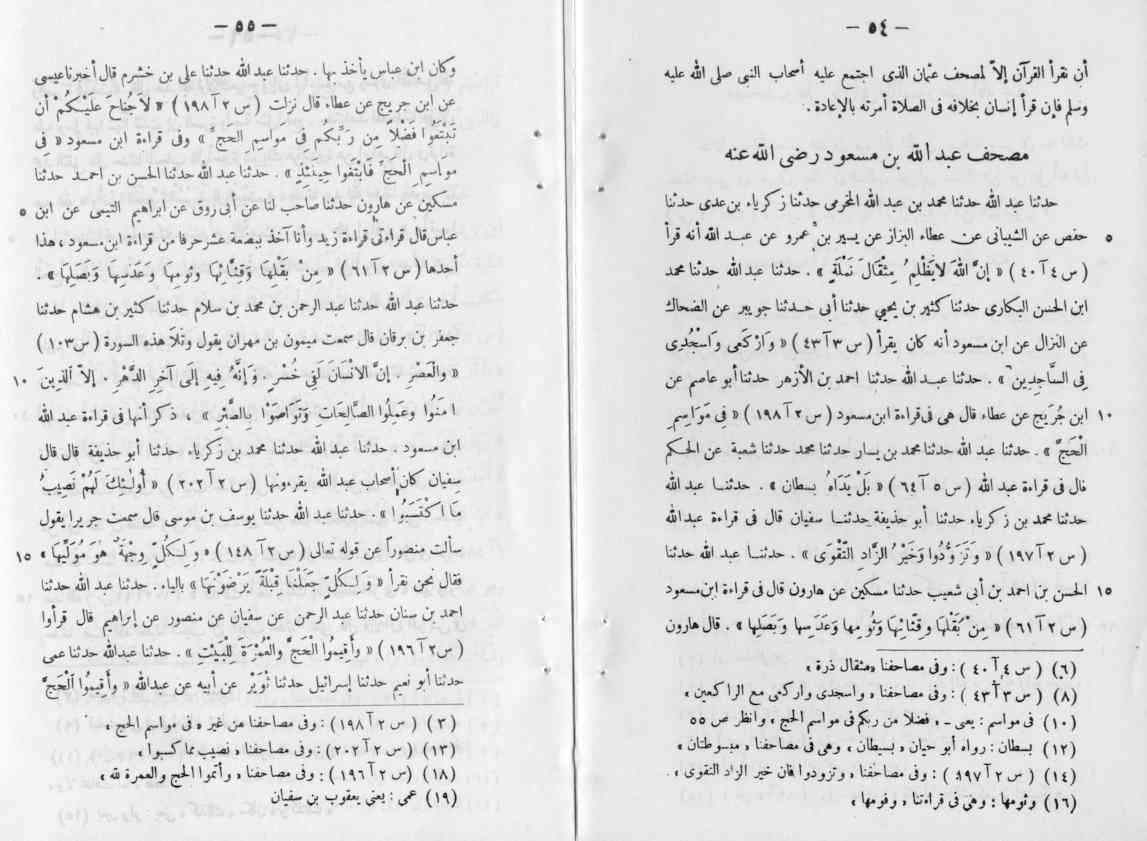 — ٥٤ —
أن نقرأ القرآن إلاّ لمصحف عثمان الذى اجتمع عليه أصحاب النبى صلى الله عليه
وسلم فإن قرأ إنسان بخلافه فى الصلاة أمرته بالإعادة .
مصحف عبد الله بن مسعود رضى الله عنه
حدثنا عبد الله حدثنا محمد بن عبد الله المخرمى حدثنا زكرياء بن عدى حدثنا
٥ حفص عن الشيبانى عن عطاء البزاز عن يسير بن عمرو عن عبد الله أنه قرأ
( س ٤ آ ٤٠ ) « إنَّ اللهَ لاَيَظْلِمُ مِثْقَالَ نَمْلَةٍ » . حدثنا عبد الله حدثنا محمد
ابن الحسن البكارى حدثنا كثير بن يحيى حدثنا أبى حدثنا جويبر عن الضحاك
عن النزال عن ابن مسعود أنه كان يقرأ ( س ٣ آ ٤٣ ) « وَارْكَعِى وَاسْجُدِى
فِى السَّاجِدِينَ » . حدثنا عبد الله حدثنا احمد بن الأزهر حدثنا أبو عاصم عن
١٠ ابن جُرَيج عن عطاء قال هى فى قراءة ابن مسعود ( س ٢ آ ١٩٨ ) « فِى مَوَاسِمِ
الْحَجِّ » . حدثنا عبد الله حدثنا محمد بن بسار حدثنا محمد حدثنا شعبة عن الحكم
قال فى قراءة عبد الله ( س ٥ آ ٦٤ ) « بَلْ يَدَاهُ بسطان » . حدثنا عبد الله
حدثنا محمد بن زكرياء حدثنا أبو حذيفة حدثنا سفيان قال فى قراءة عبد الله
( س ٢ آ ١٩٧ ) « وَتَزَوَّدُوا وَخَيْرُ الزَّادِ التَّقْوَى » . حدثنا عبد الله حدثنا
١٥ الحسن بن احمد بن أبى شعيب حدثنا مسكين عن هارون قال فى قراءة ابن مسعود
( س ٢ آ ٦١ ) « مِنْ بَقْلِهَا وَقِثَّائِهَا وَثُومِها وَعَدَسِها وَبَصَلِها » . قال هارون
(٦) ( س ٤ آ ٤٠ ) : وفى مصاحفنا «مثقال ذرة »
(٨) ( س ٣ آ ٤٣ ) : وفى مصاحفنا « واسجدى واركعى مع الراكعين »
(١٠) فى مواسم : يعنى ـ « فضلا من ربكم فى مواسم الحج » وانظر ص ٥٥
(١٢) بسطان : رواه أبو حيان « بسيطان » وهى فى مصاحفنا « مبسوطتان »
(١٤) ( س ٢ آ ١٩٧ ) : وفى مصاحفنا « وتزودوا فإن خير الزاد التقوى » .
(١٦) وثومها : وهى فى قراءتنا « وفومها »
— ٥٥ —
وكان ابن عباس يأخذ بها . حدثنا عبد الله حدثنا على بن خشرم قال أخبرنا عيسى
عن ابن جريج عن عطاء قال نزلت ( س ٢ آ ١٩٨ ) « لاَجُنَاحَ عَلَيْكُمْ أَن
تَبْتَغُوا فَضْلًا مِن رَبِّكم فِى مَواسِمِ الحَجِّ » وفى قراءة ابن مسعود « فى
مَواسِمِ الْحَجِّ فَابْتَغُوا حِينَئِذٍ » . حدثنا عبد الله حدثنا الحسن بن احمد حدثنا
٥ مسكين عن هارون حدثنا صاحب لنا عن أبى روق عن ابراهيم التيمى عن ابن
عباس قال قراءتى قراءة زيد وأنا آخذ ببضعة عشر حرفا من قراءة ابن مسعود ، هذا
أحدها ( س ٢ آ ٦١ ) « مِنْ بَقْلِهَا وَقِثَّائِهَا وَثُومِهَا وَعَدَسِهَا وَبَصَلِهَا » .
حدثنا عبد الله حدثنا عبد الرحمن بن محمد بن سلام حدثنا كثير بن هشام حدثنا
جعفر بن برقان قال سمعت ميمون بن مهران يقول وتلَا هذه السورة ( س ١٠٣ )
١٠ « والْعَصْرِ . إنَّ الانْسَانَ لَفِى خُسْرٍ . وَإنَّهُ فِيهِ إلَى آخِرِ الدَّهْرِ . إلاّ الذِينَ
امَنُوا وعَمِلُوا الصَّالِحَاتِ وَتَوَاصَوْا بِالصَّبْرِ » ، ذكر أنها فى قراءة عبد الله
ابن مسعود . حدثنا عبد الله حدثنا محمد بن زكرياء حدثنا أبو حذيفة قال قال
سفيان كان أصحاب عبد الله يقرءونها ( س ٢ آ ٢٠٢ ) « أُولَئِكَ لَهُمْ نَصِيبُ
مَا اكْتَسَبُوا » . حدثنا عبد الله حدثنا يوسف بن موسى قال سمعت جريرا يقول
١٥ سألت منصوراً عن قوله تعالى ( س ٢ آ ١٤٨ ) « وَلِكُلٍّ وِجْهَةٌ هُوَ مُوَلِّيهَا »
فقال نحن نقرأ « وَلِكُلٍّ جَعَلْنَا قِبْلَةً يَرْضَوْنَهَا » بالياء . حدثنا عبد الله حدثنا
احمد بن سنان حدثنا عبد الرحمن عن سفيان عن منصور عن إبراهيم قال قرأوا
( س ٢ آ ١٩٦ ) « وأقِيمُوا الحَجَّ والْعُمْرَةَ لِلْبَيْتِ » . حدثنا عبد الله حدثنا عمى
حدثنا أبو نعيم حدثنا إسرائيل حدثنا ثُوَيْر عن أبيه عن عبد الله « وأَقِيمُوا الْحَجَّ
(٣) ( س ٢ آ ١٩٨ ) : وفى مصاحفنا من غير « فى مواسم الحج »
(١٣) ( س ٢ آ ٢٠٢ ) : وفى مصاحفنا « نصيب مما كسبوا »
(١٨) ( س ٢ آ ١٩٦ ) : وفى مصاحفنا « وأتموا الحج والعمرة لله »
(١٩) عمى : يعنى يعقوب بن سفيان